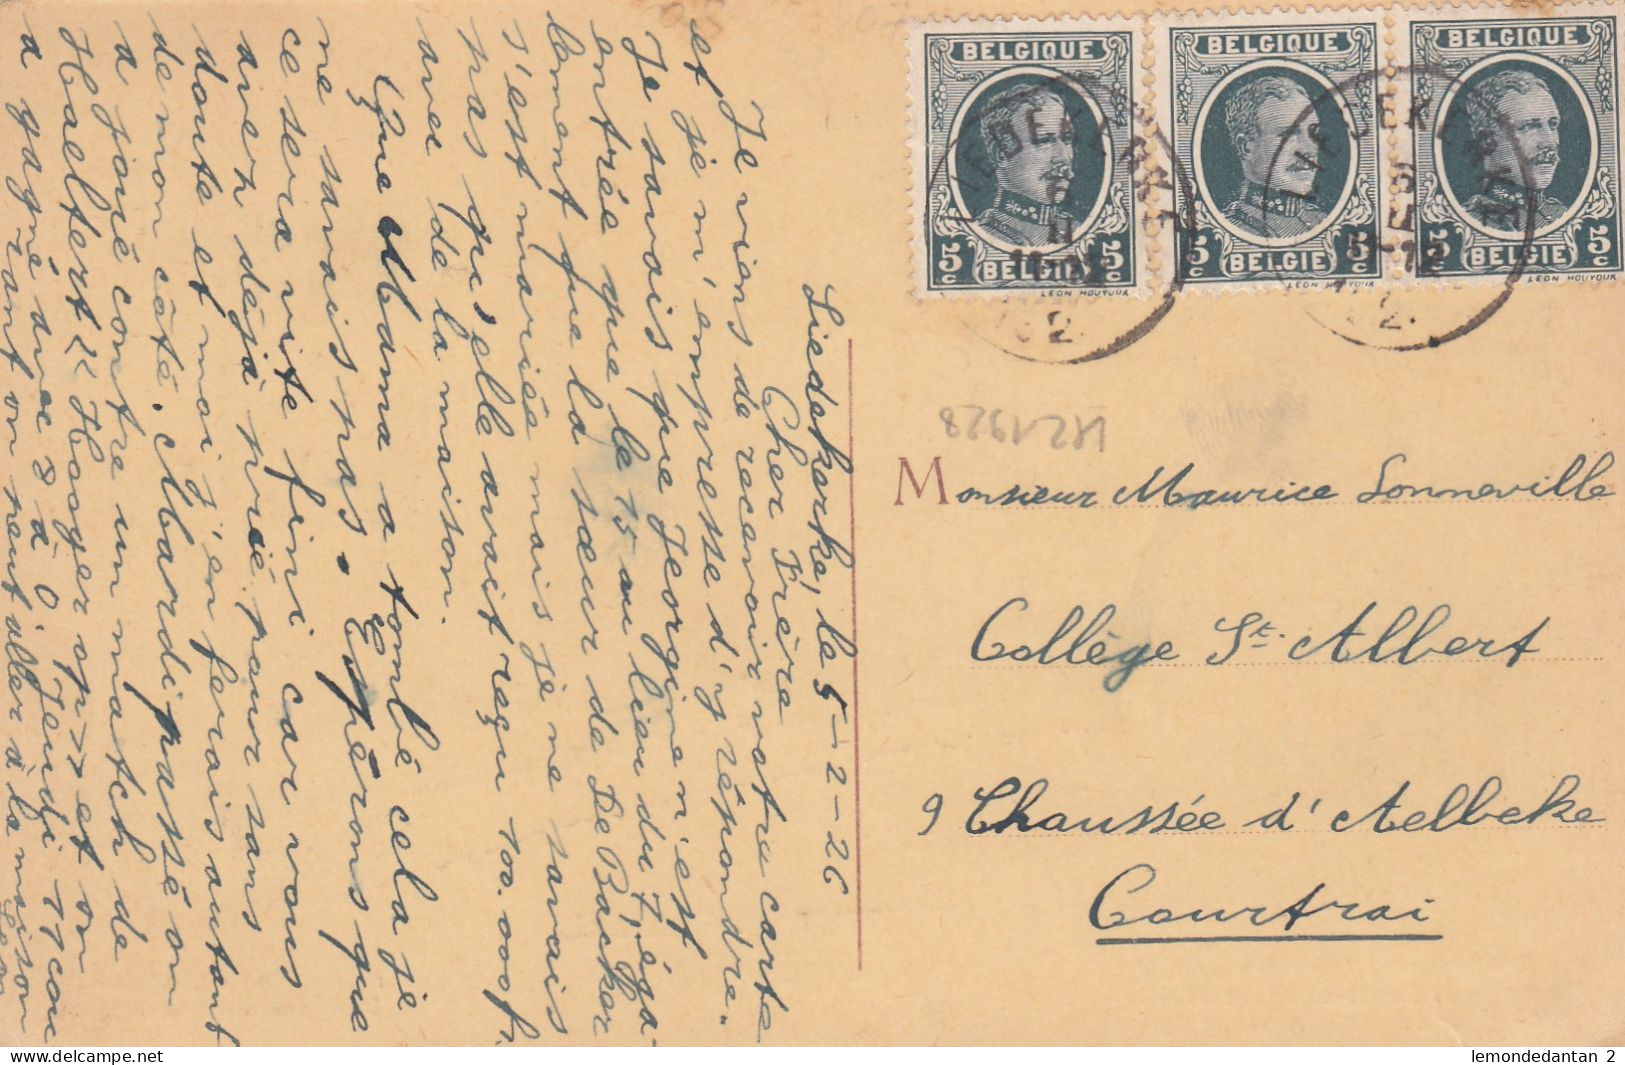 Liedekerke, le 5-2-26
Cher Frère
Je viens de recevoir votre carte
et je m'empresse d'y répondre.
Je savais que Georgine n'est
entrée que le 15 au lieu du 7, éga-
lement que la sœur de De Backer
s'est mariée mais je ne savais
pas qu'elle avait reçu 100.000 f.
avec de la maison.
Que Mama a tombé cela je
ne savais pas. Espérons que
ce sera vite fini car vous
avez déjà prié pour sans
doute et moi j'en ferais autant
de mon côté. Mardi passé on
a joué contre un match de
Haeltert << Hooger op >> et on
a gagné avec 8 à 0. Jeudi 11 cou
rant on peut aller à la maison
BELGIQUE
BELGIQUE
BELGIQUE
5c BELGIE 5c
5c BELGIE 5c
5c BELGIE 5c
LEON HOUYOUX
LEON HOUYOUX
LEON HOUYOUX
LIEDEKERKE
LIEDEKERKE
KZ1928
Monsieur Maurice Sonneville
Collège St. Albert
9 Chaussée d'Aelbeke
Courtrai
lemondedantan 2